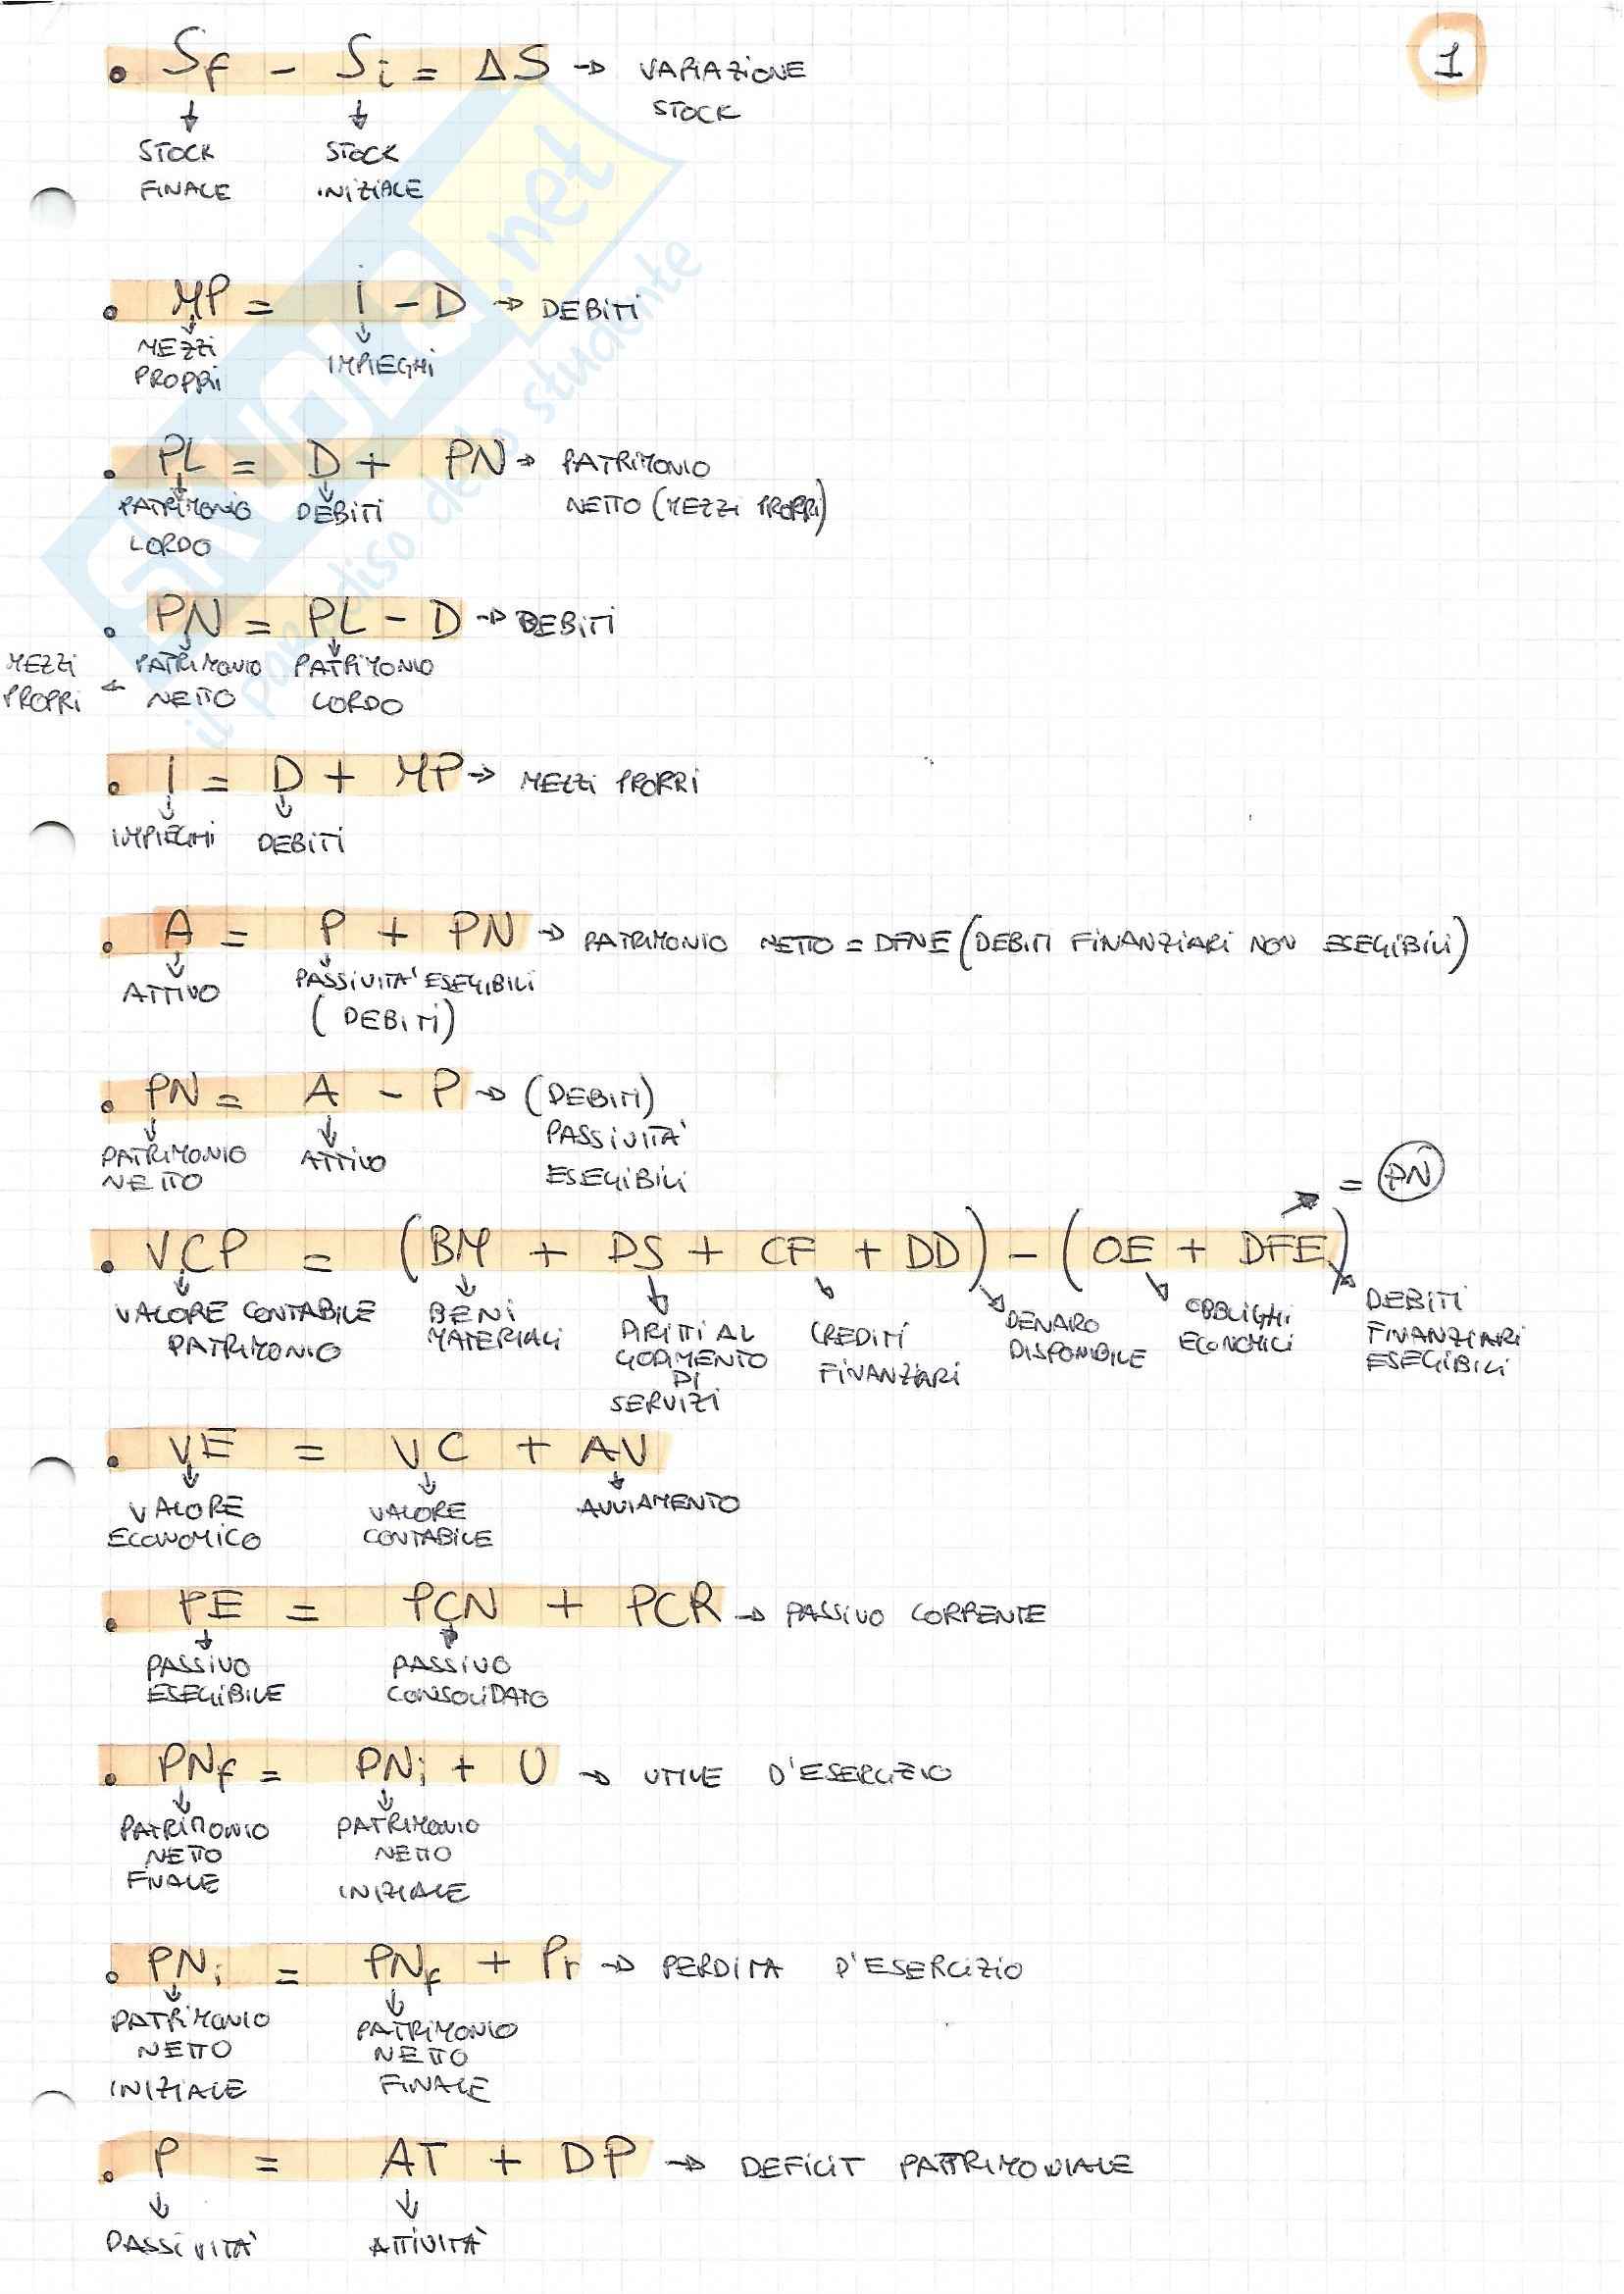 1
• Sf - Si = ΔS → VARIAZIONE
STOCK
STOCK STOCK
FINALE INIZIALE
• MP = I - D → DEBITI
MEZZI IMPIEGHI
PROPRI
• PL = D + PN → PATRIMONIO
PATRIMONIO DEBITI NETTO (MEZZI PROPRI)
LORDO
• PN = PL - D → DEBITI
MEZZI PATRIMONIO PATRIMONIO
PROPRI ← NETTO LORDO
• I = D + MP → MEZZI PROPRI
IMPIEGHI DEBITI
• A = P + PN → PATRIMONIO NETTO = DFNE (DEBITI FINANZIARI NON ESEGIBILI)
ATTIVO PASSIVITA' ESEGIBILI
(DEBITI)
• PN = A - P → (DEBITI)
PATRIMONIO ATTIVO PASSIVITA'
NETTO ESEGIBILI
= PN
• VCP = (BM + DS + CF + DD) - (OE + DFE)
VALORE CONTABILE BENI DIRITTI AL CREDITI DENARO OBBLIGHI DEBITI
PATRIMONIO MATERIALI GODIMENTO FINANZIARI DISPONIBILE ECONOMICI FINANZIARI
DI ESEGIBILI
SERVIZI
• VE = VC + AV
VALORE VALORE AVVIAMENTO
ECONOMICO CONTABILE
• PE = PCN + PCR → PASSIVO CORRENTE
PASSIVO PASSIVO
ESEGIBILE CONSOLIDATO
• PNf = PNi + U → UTILE D'ESERCIZIO
PATRIMONIO PATRIMONIO
NETTO NETTO
FNALE INIZIALE
• PNi = PNf + Pr → PERDITA D'ESERCIZIO
PATRIMONIO PATRIMONIO
NETTO NETTO
INIZIALE FINALE
• P = AT + DP → DEFICIT PATRIMONIALE
PASSIVITA' ATTIVITA'
SKUOLA.net
il paradiso dello studente